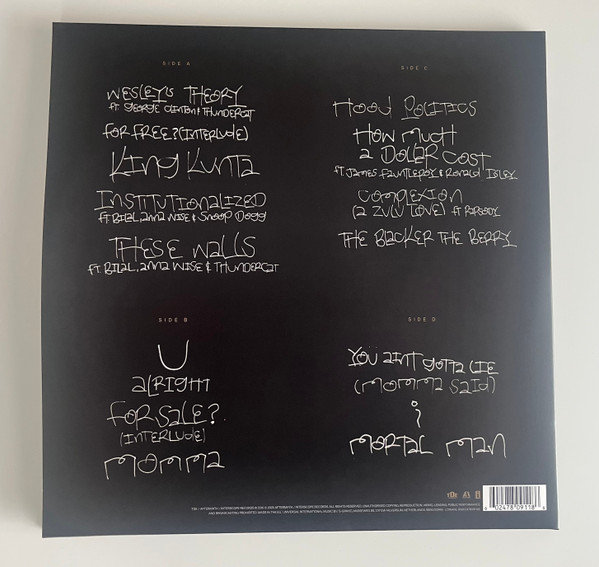 SIDE A
WESLEY'S THEORY
ft. GEORGE CLINTON & THUNDERCAT
FOR FREE? (INTERLUDE)
KING KUNTA
INSTITUTIONALIZED
ft BILAL, ANNA WISE & SNOOP DOGG
THESE WALLS
ft. BILAL, ANNA WISE & THUNDERCAT
SIDE B
U
ALRIGHT
FOR SALE?
(INTERLUDE)
MOMMA
SIDE C
HOOD POLITICS
HOW MUCH
A DOLLAR COST
ft. JAMES FAUNTLEROY & RONALD ISLEY
COMPLEXION
(A ZULU LOVE) ft RAPSODY
THE BLACKER THE BERRY
SIDE D
YOU AINT GOTTA LIE
(MOMMA SAID)
i
MORTAL MAN
TDE